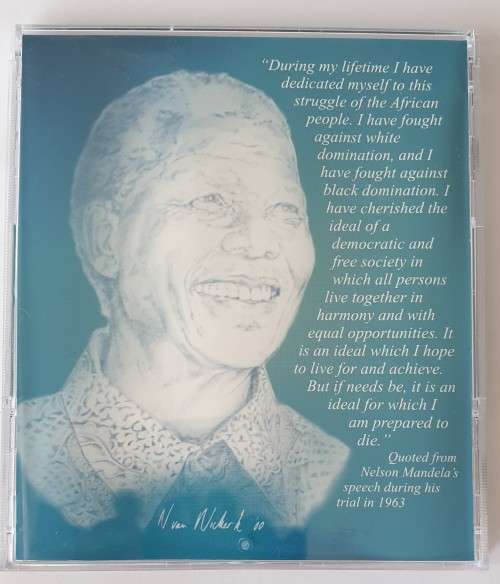 “During my lifetime I have
dedicated myself to this
struggle of the African
people. I have fought
against white
domination, and I
have fought against
black domination. I
have cherished the
ideal of a
democratic and
free society in
which all persons
live together in
harmony and with
equal opportunities. It
is an ideal which I hope
to live for and achieve.
But if needs be, it is an
ideal for which I
am prepared to
die.”
Quoted from
Nelson Mandela’s
speech during his
trial in 1963
N van Niekerk 00